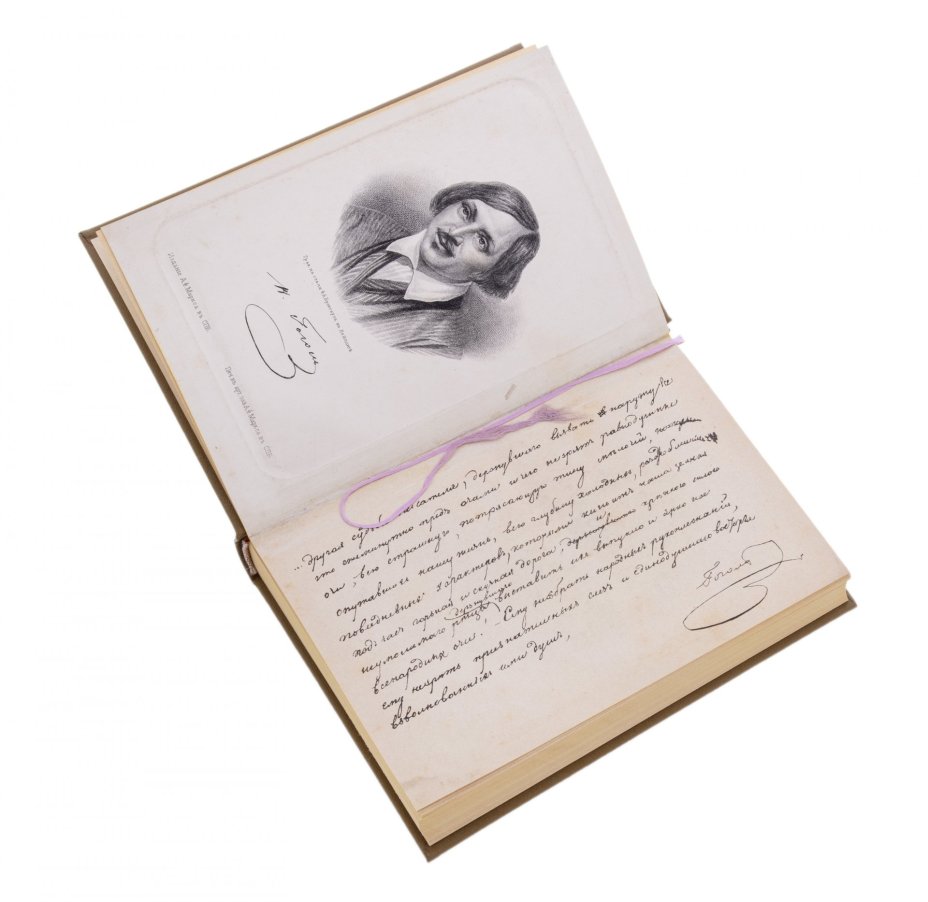 Грав. на стали Ф.А.Брокгауза въ Лейпцигѣ
Н. Гоголь
Изданіе А.Ф.Маркса въ СПБ.
Печ. въ арт. зав. А.Ф.Маркса въ СПБ.
...другая судьба писателя, дерзнувшаго вызвать наружу все
что ежеминутно предъ очами и чего не зрятъ равнодушные
очи, всю страшную, потрясающую тину мелочей,
опутавшихъ нашу жизнь, всю глубину холодныхъ, раздробленныхъ
повседневныхъ характеровъ, которыми кишитъ наша земная
подчасъ горькая и скучная дорога, и крѣпкою силою
неумолимаго рѣзца дерзнувшаго выставить ихъ выпукло и ярко на
всенародныя очи! – Ему не собрать народныхъ рукоплесканій,
ему не зрѣть признательныхъ слезъ и единодушнаго восторга
взволнованныхъ имъ душъ,
Гоголь